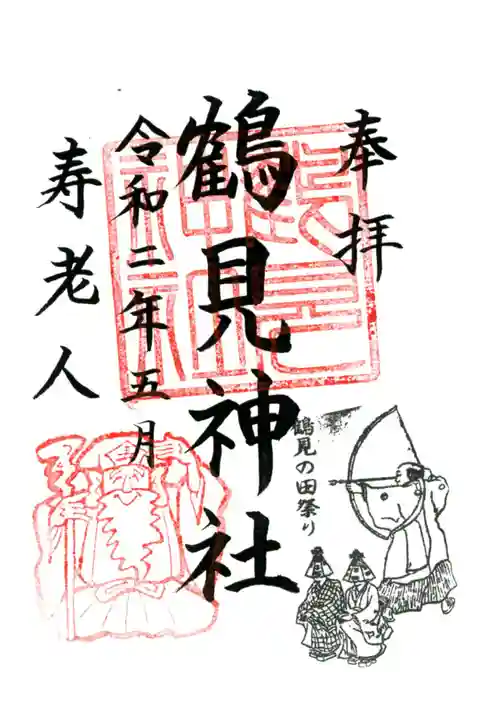 奉拝
鶴見の田祭り
鶴見神社
令和二年五月
寿老人
鶴見神社